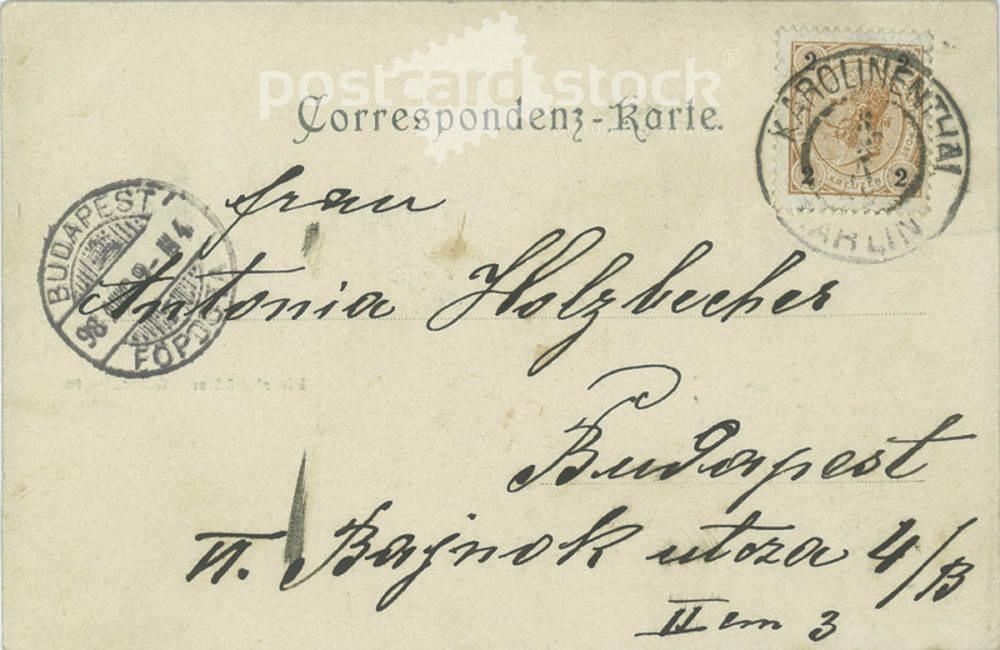 postcardstock®
Correspondenz-Karte.
2 2
KAROLINENTHAL
2 KREUZER 2
KARLIN
BUDAPEST
98
4
FŐPO
Frau
Antonia Holzbecher
Budapest
VI. Bajnok utcza 4/B
II em 3